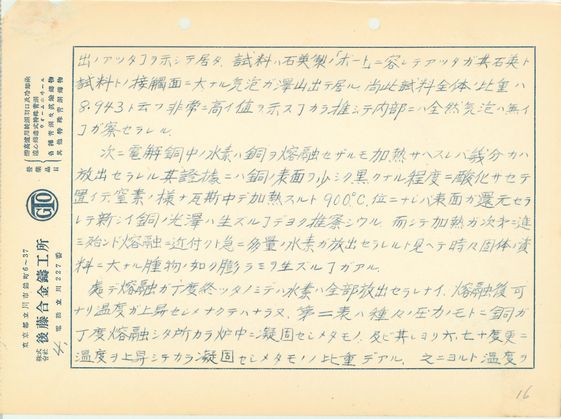 出ノアツタヿヲ示シテ居ル、試料ハ石英製ノ「ボート」ニ容レテアツタガ其石英ト
試料トノ接觸面ニ大ナル気泡ガ澤山出テ居ル尚此試料全体ノ比重ハ
8.943ト云フ非常ニ高イ値ヲ示スヿカラ推シテ内部ニハ全然気泡ハ無イ
ヿガ察セラレル。
次ニ電解銅中ノ水素ハ銅ヲ熔融セザルモ加熱サヘスレバ幾分カハ
放出セラレル其證據ニハ銅ノ表面ヲ少シク黒クナル程度ニ酸化サセテ
置イテ、窒素ノ様ナ瓦斯中デ加熱スルト900℃.位ニナレバ表面ガ還元セラ
レテ新シイ銅ノ光澤ハ生ズルヿデヨク推察シウル 而シテ加熱ガ次第ニ進
ミ殆ンド熔融ニ近付クト急ニ多量ノ水素ガ放出セラレルト見ヘテ時々固体ノ資
料ニ大ナル腫物ノ如ク膨ラミヲ生ズルヿガアル。
處デ熔融ガ丁度終ツタノミデハ水素ハ全部放出セラレナイ、熔融後可
ナリ温度ガ上昇セシメナクテハナラヌ、第二表ハ種々ノ圧力ノモトニ銅ガ
丁度熔融シタ所カラ炉中ニ凝固セシメタモノ、及ビ其レヨリ六、七十度更ニ
温度ヲ上昇シテカラ凝固セシメタモノノ比重デアル、之ニヨルト温度ヲ
16
營業品目
GTO
株式会社 後藤合金鑄工所
東京都立川市錦町6~37
電話立川227番